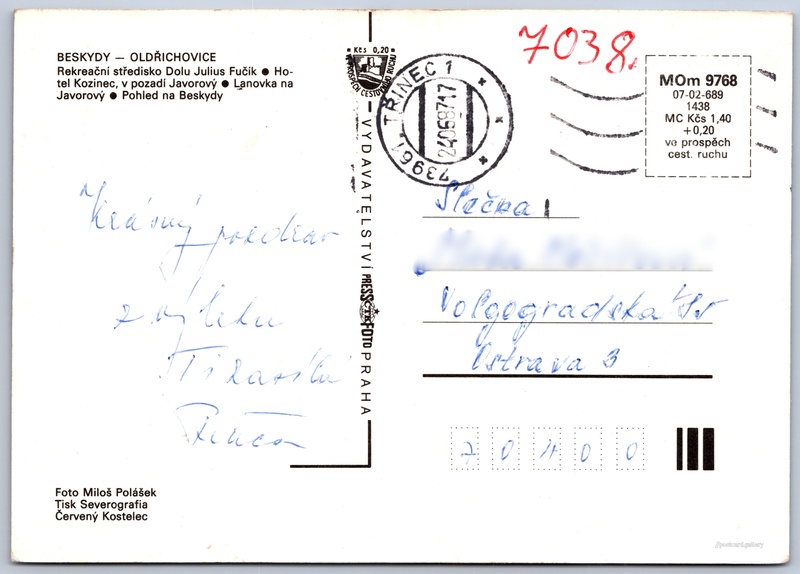 BESKYDY — OLDŘICHOVICE
Rekreační středisko Dolu Julius Fučík ● Ho-
tel Kozinec, v pozadí Javorový ● Lanovka na
Javorový ● Pohled na Beskydy
Krásný pozdrav
z výletu
Foto Miloš Polášek
Tisk Severografia
Červený Kostelec
Kčs 0,20
VE PROSPĚCH CESTOVNÍHO RUCHU
VYDAVATELSTVÍ PRESSFOTO PRAHA
73961 TŘINEC 1
7038.
MOm 9768
07-02-689
1438
MC Kčs 1,40
+0,20
ve prospěch
cest. ruchu
Slečna
Volgogradská
Ostrava 3
7 0 4 0 0
//postcard.gallery